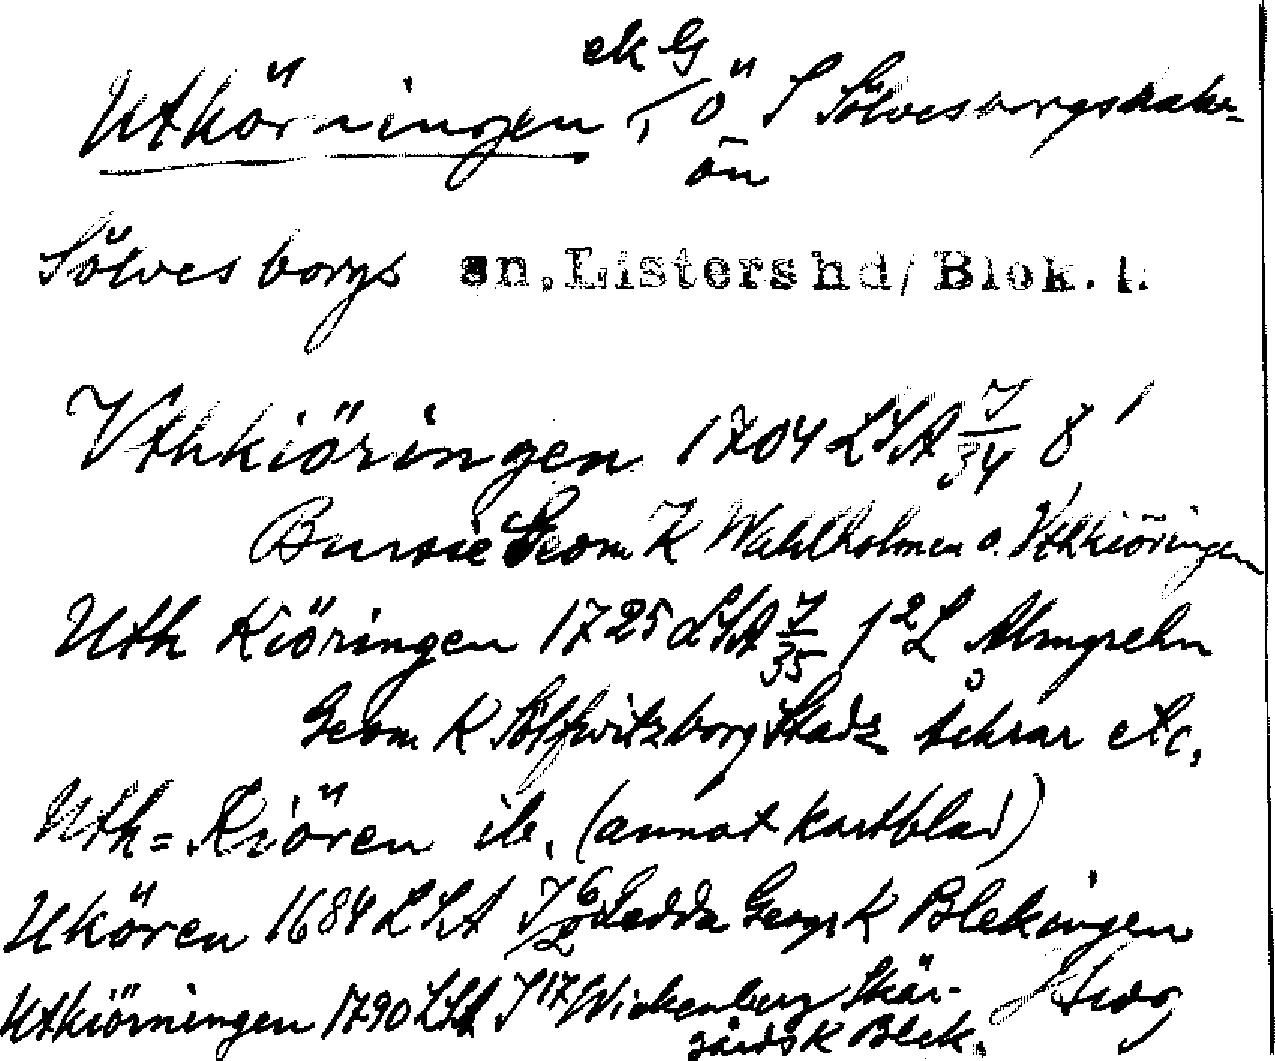 ek G
Utkörningen, ö S Sölvesborgshake-
ön
Sölvesborgs sn. Listers hd/Blek. l.
Vthkiöringen 1704 LSA J/34 8'
Bursie Geom K Wahlholmen o. Vthkiöringen
Uth Kiöringen 1725 LSA J/35 1² L Almgrehn
Geom K Sölfwitzborg Stadz åckrar etc.
Uth=Kiören ib. (annat kartblad)
Ukören 1684 LSA Gedda Geogr K Blekingen
Utkiörningen 1790 LSA J 17 Wickenberg Skär-
gårds K Blek.